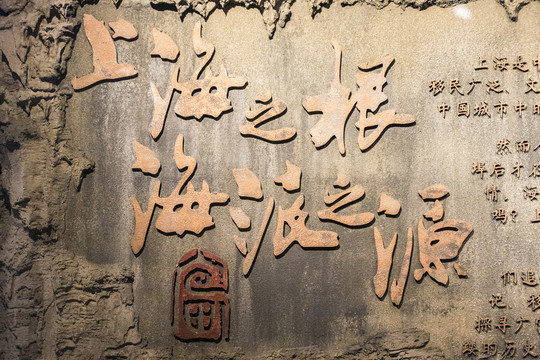 上海之根
海派之源
上海是中
移民广泛、文
中国城市中的
然而
后才
情，海
吗？上
们追
记，移
探寻广
的历史